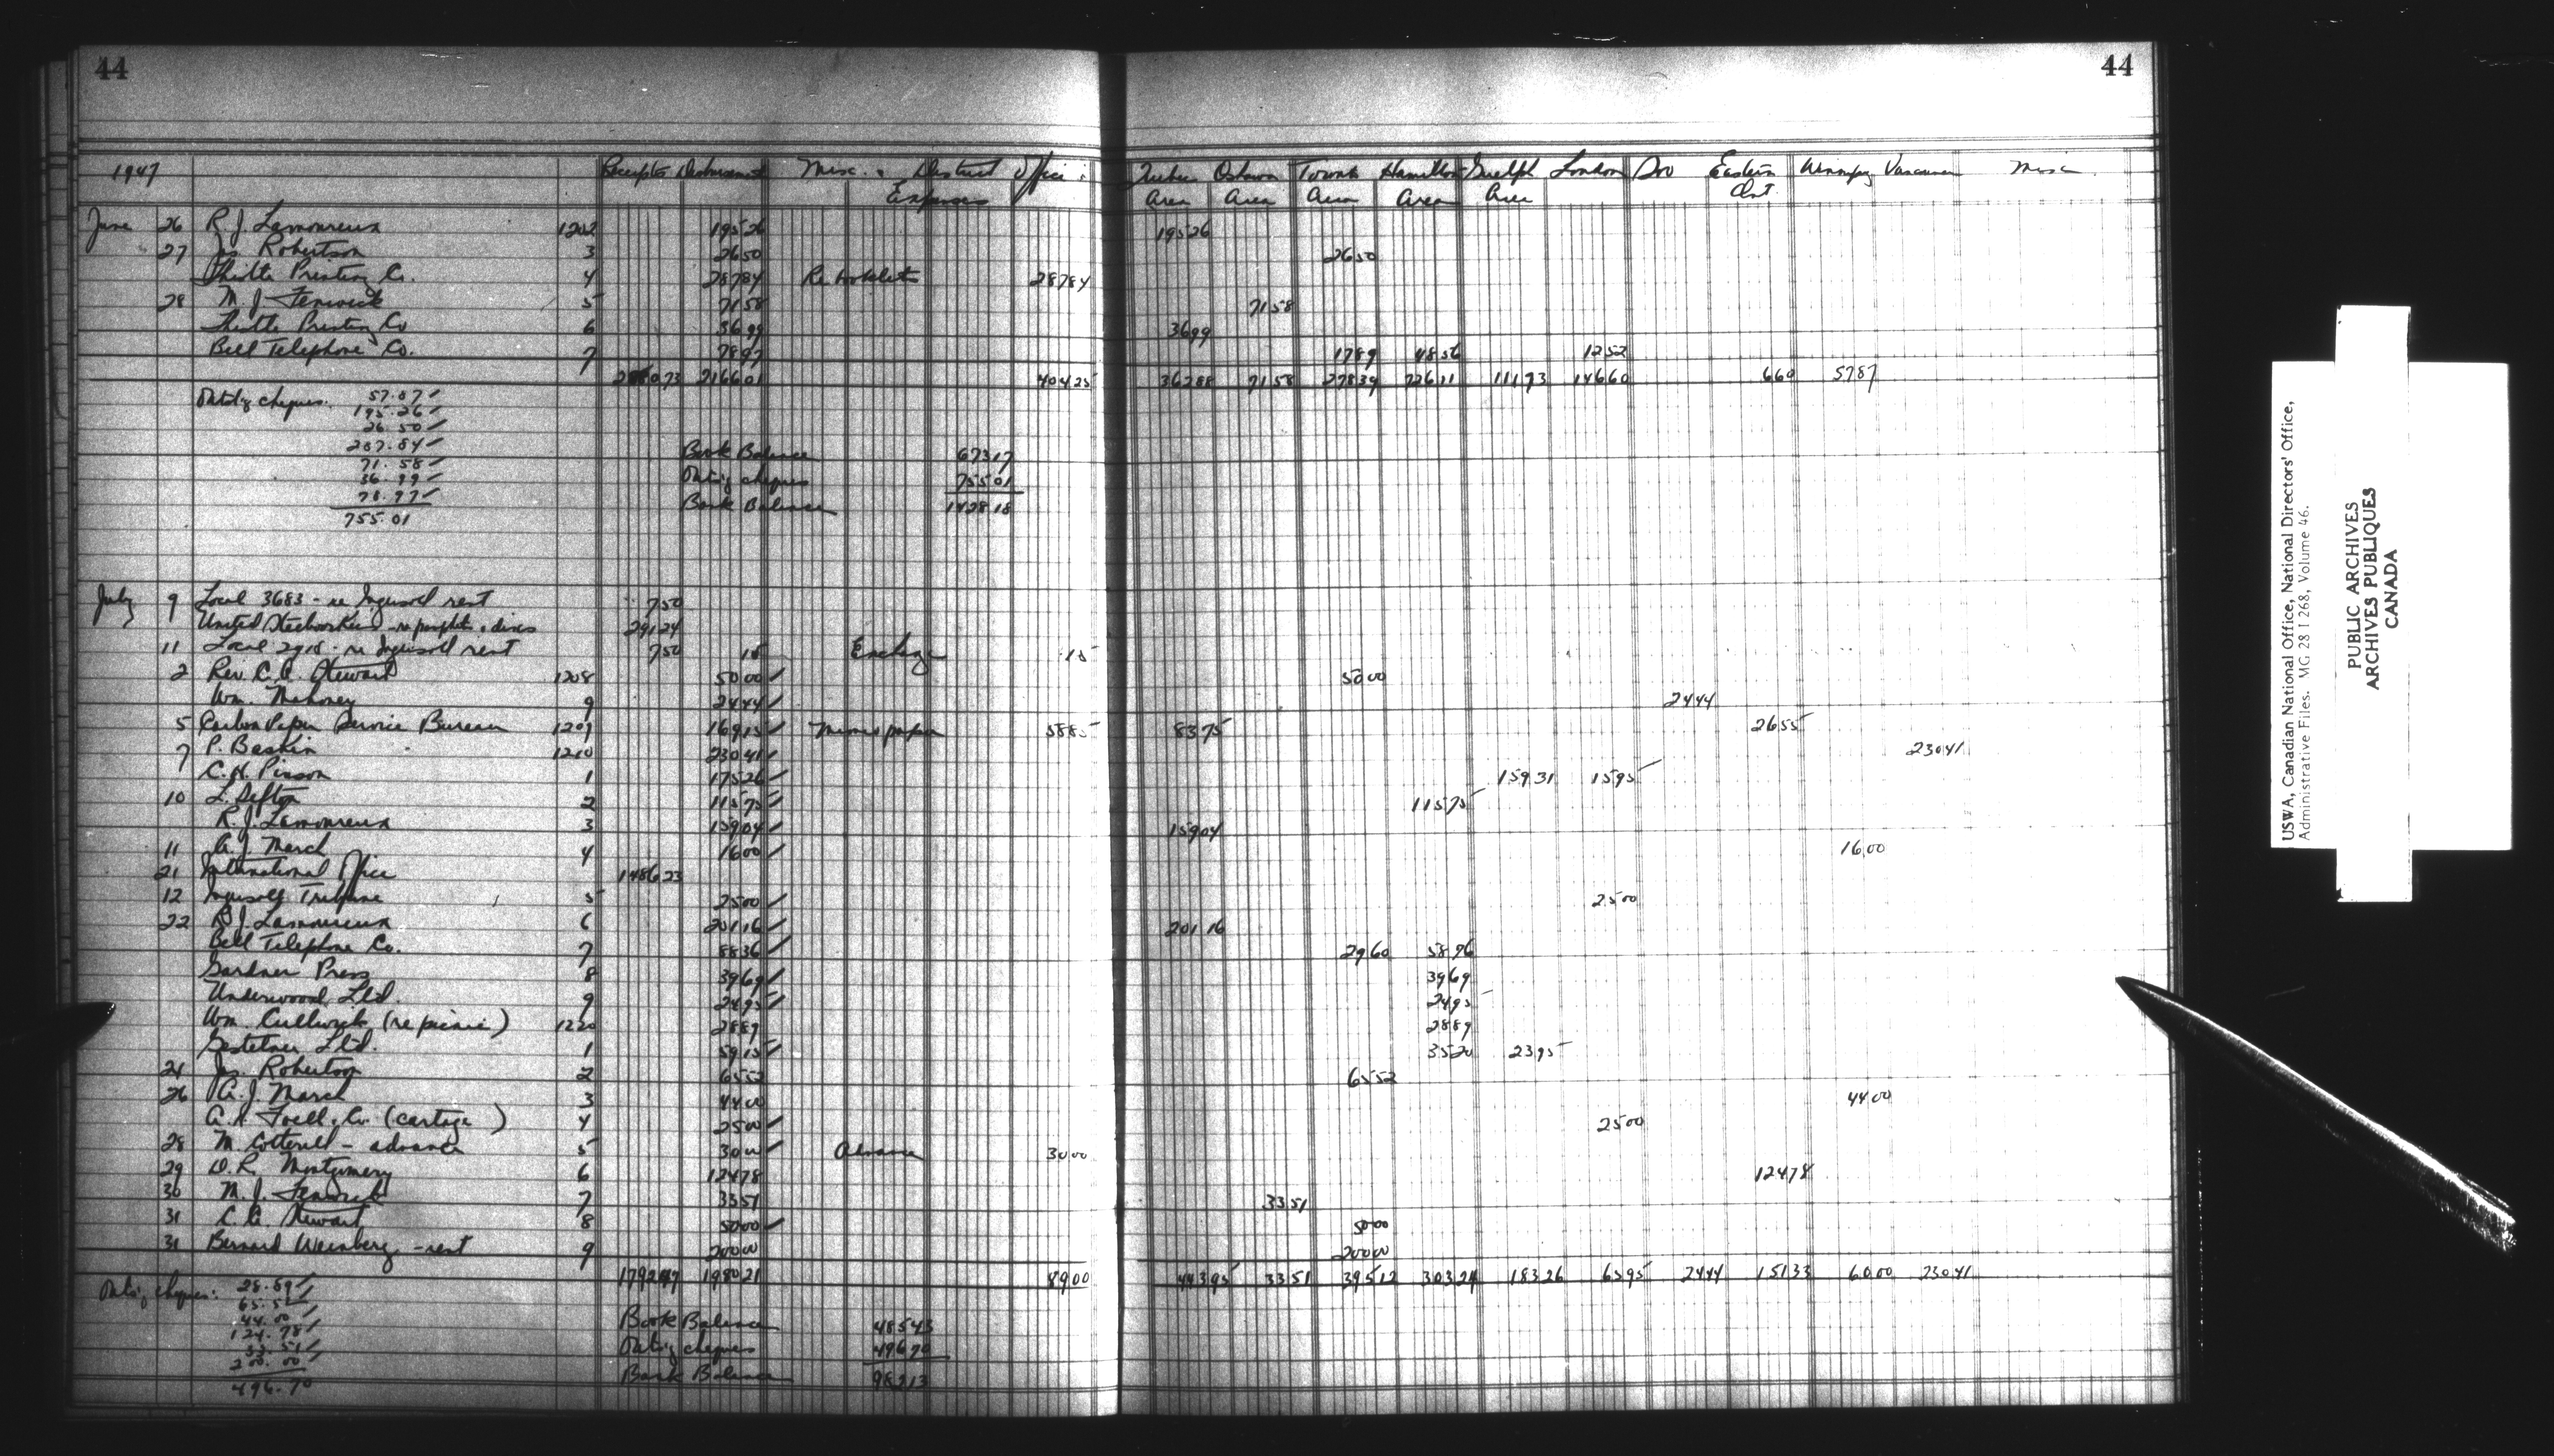 44 44
1947 Receipts Disbursements Misc. District Office Quebec Oshawa Toronto Hamilton Guelph London Soo Eastern Winnipeg Vancouver Misc
Expenses Area Area Area Area Area Ont.
June 26 R. J. Lamoureux 1202 195 26 195 26
27 Jas. Robertson 3 26 50 26 50
Thistle Printing Co. 4 287 84 Re booklets 287 84
28 M. J. Fenwick 5 71 58 71 58
Thistle Printing Co 6 36 99 36 99
Bell Telephone Co. 7 78 97 17 89 48 56 12 52
2166 01 404 25 362 88 71 58 278 39 726 11 111 73 146 60 6 60 57 87
Outs'g cheques. 57.87
195.26
26.50
287.84
71.58
36.99
78.97
755.01
Book Balance 673 17
Outs'g cheques 755 01
Bank Balance 1428 18
July 9 Local 3683 - re Ingersoll rent 7 50
United Steelworkers - re pamphlets & discs 291 24
11 Local 2918 - re Ingersoll rent 7 50 15 Exchange 15
2 Rev. C. A. Stewart 1208 50 00 50 00
Wm. Mahoney 9 24 44 24 44
5 Carbon Paper Service Bureau 1209 169 15 Mimeo paper 58 85 83 75 26 55
7 P. Baskin 1210 230 41 230 41
C. H. Pinson 1 175 26 159 31 15 95
10 L. Sefton 2 115 75 115 75
R. J. Lamoureux 3 159 04 159 04
11 A. J. March 4 16 00 16 00
21 International Office 1486 23
12 Ingersoll Tribune 5 25 00 25 00
22 R. J. Lamoureux 6 201 16 201 16
Bell Telephone Co. 7 88 36 29 60 58 76
Gardner Press 8 39 69 39 69
Underwood Ltd. 9 24 95 24 95
Wm. Cullwick (re picnic) 1220 28 89 28 89
Gestetner Ltd. 1 59 15 35 20 23 95
24 Jas. Robertson 2 65 52 65 52
26 A. J. March 3 44 00 44 00
Co. (cartage) 4 25 00 25 00
28 M. Cotterill - advance 5 30 00 Advance 30 00
29 D. R. Montgomery 6 124 78 124 78
30 M. J. Fenwick 7 33 51 33 51
31 C. A. Stewart 8 50 00 50 00
31 Bernard Weinberg - rent 9 200 00 200 00
1792 47 1980 21 89 00 443 95 33 51 395 12 303 24 183 26 65 95 24 44 151 33 60 00 230 41
Outs'g cheques: 28.89
65.52
44.00
124.78
33.51
200.00
496.70
Book Balance 485 43
Outs'g cheques 496 70
Bank Balance 982 13
USWA, Canadian National Office, National Directors' Office,
Administrative Files. MG 28 I 268, Volume 46.
PUBLIC ARCHIVES
ARCHIVES PUBLIQUES
CANADA